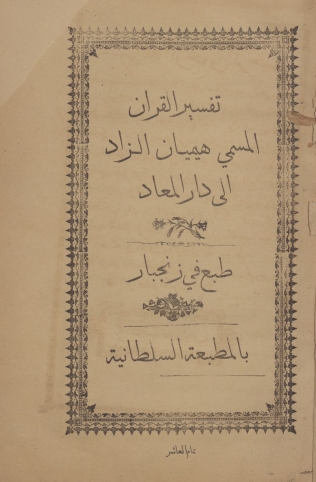 تفسير القران
المسمي هيميان الزاد
الى دار المعاد
طبع في زنجبار
بالمطبعة السلطانية